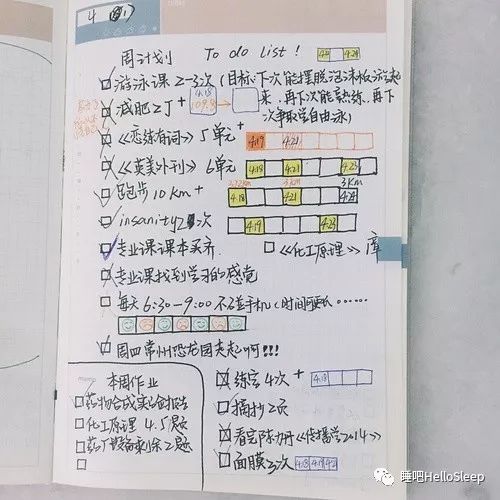 4
周计划 To do list! 4.18 4.24
游泳课 2-3次 (目标:下次能摆脱泡沫板游起
来，再下次能熟练，再下
次争取学自由泳)
减肥2斤+ 4.18 109.8
《恋练有词》5单元+ 4.19 4.21
《英美外刊》6单元 4.18 4.21 4.23
跑步10km+ 3.22km 3km 3km
4.18 4.21 4.24
insanity 2次 4.19 4.23
专业课课本买齐 《化工原理》库
专业课找到学习的感觉
每天6:30-9:00不碰手机(时间
周四常州恐龙园走起啊!!!
memo
本周作业
药物合成实验
化工原理 4.5题
药厂设备 2题
练字4次+ 4.18
摘抄2页
看完陈力丹《传播学2014》
面膜3次 4.18 4.19
睡吧HelloSleep